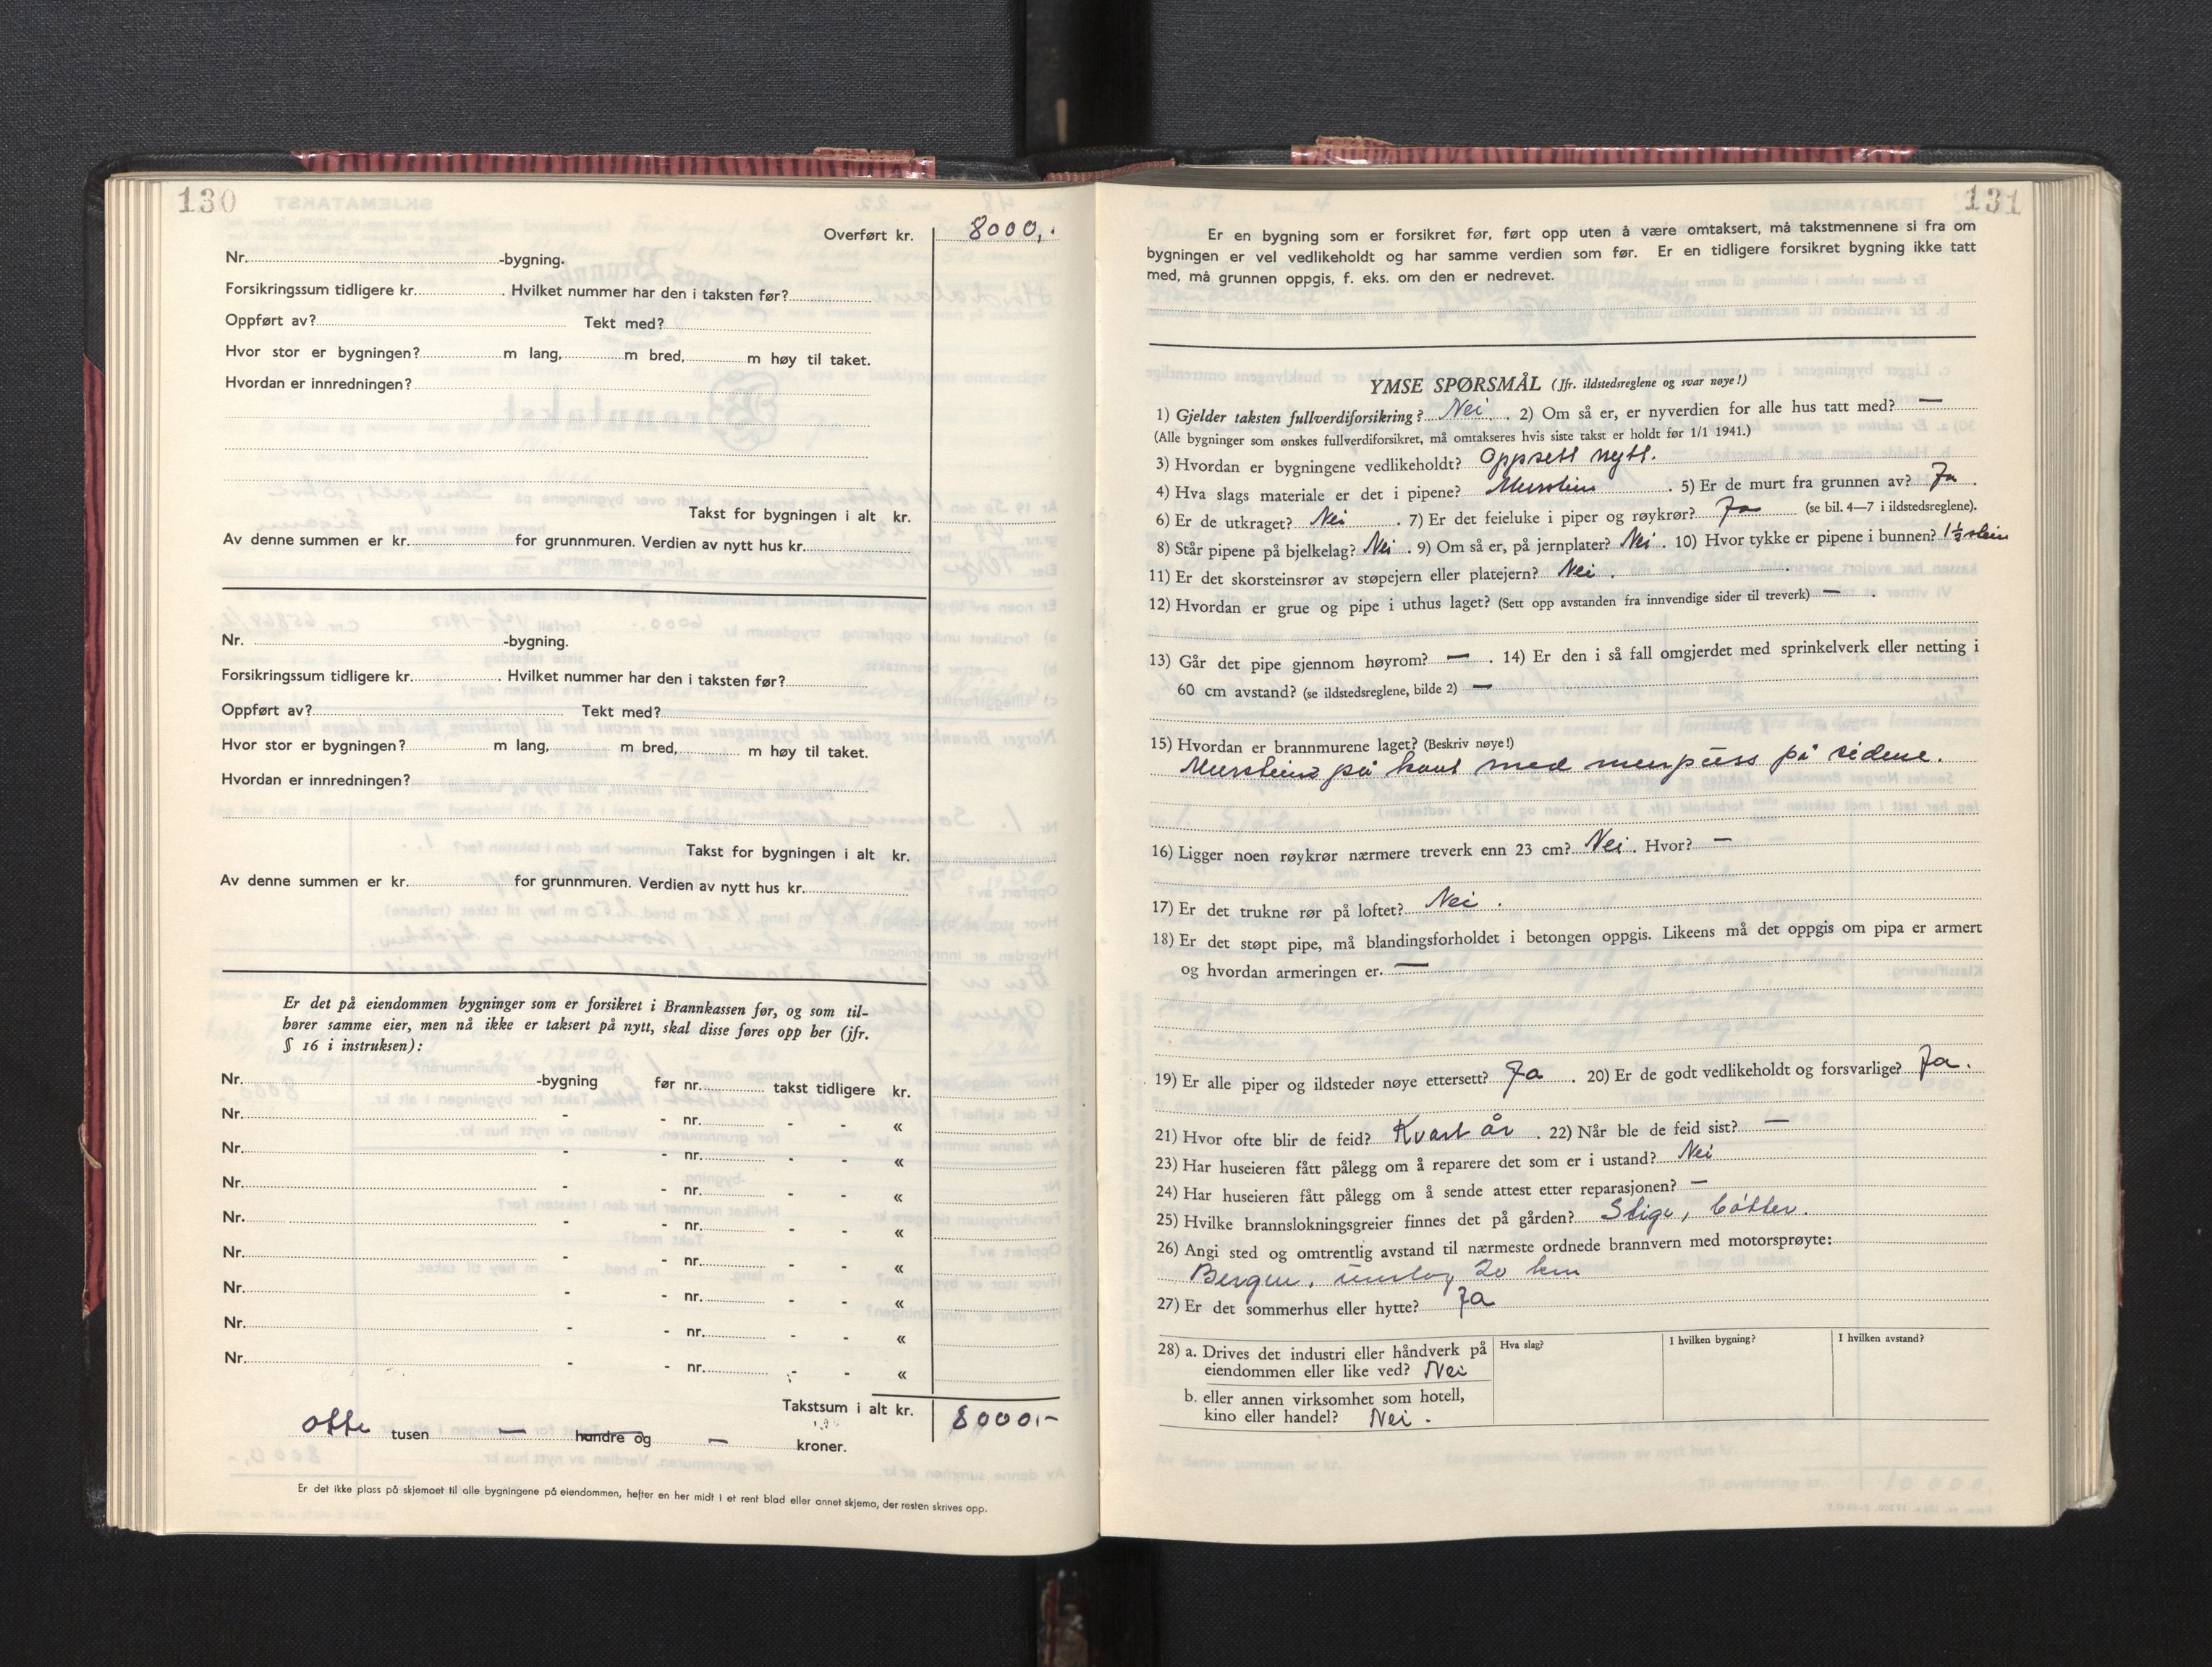 130
Overført kr. 8000,-
Nr. -bygning.
Forsikringssum tidligere kr. . Hvilket nummer har den i taksten før?
Oppført av? Tekt med?
Hvor stor er bygningen? m lang, m bred, m høy til taket.
Hvordan er innredningen?
Takst for bygningen i alt kr.
Av denne summen er kr. for grunnmuren. Verdien av nytt hus kr.
Nr. -bygning.
Forsikringssum tidligere kr. . Hvilket nummer har den i taksten før?
Oppført av? Tekt med?
Hvor stor er bygningen? m lang, m bred, m høy til taket.
Hvordan er innredningen?
Takst for bygningen i alt kr.
Av denne summen er kr. for grunnmuren. Verdien av nytt hus kr.
Er det på eiendommen bygninger som er forsikret i Brannkassen før, og som til-
hører samme eier, men nå ikke er taksert på nytt, skal disse føres opp her (jfr.
§ 16 i instruksen):
Nr. -bygning før nr. takst tidligere kr.
Nr. - - nr. - - «
Nr. - - nr. - - «
Nr. - - nr. - - «
Nr. - - nr. - - «
Nr. - - nr. - - «
Nr. - - nr. - - «
Nr. - - nr. - - «
Nr. - - nr. - - «
Takstsum i alt kr. 8000,-
otte tusen — hundre og — kroner.
Er det ikke plass på skjemaet til alle bygningene på eiendommen, hefter en her midt i et rent blad eller annet skjema, der resten skrives opp.
131
Er en bygning som er forsikret før, ført opp uten å være omtaksert, må takstmennene si fra om
bygningen er vel vedlikeholdt og har samme verdien som før. Er en tidligere forsikret bygning ikke tatt
med, må grunnen oppgis, f. eks. om den er nedrevet.
YMSE SPØRSMÅL (Jfr. ildstedsreglene og svar nøye!)
1) Gjelder taksten fullverdiforsikring? Nei . 2) Om så er, er nyverdien for alle hus tatt med? —
(Alle bygninger som ønskes fullverdiforsikret, må omtakseres hvis siste takst er holdt før 1/1 1941.)
3) Hvordan er bygningene vedlikeholdt? Oppsett nytt.
4) Hva slags materiale er det i pipene? Murstein . 5) Er de murt fra grunnen av? Ja .
6) Er de utkraget? Nei . 7) Er det feieluke i piper og røykrør? Ja (se bil. 4—7 i ildstedsreglene).
8) Står pipene på bjelkelag? Nei . 9) Om så er, på jernplater? Nei . 10) Hvor tykke er pipene i bunnen? 1½ stein
11) Er det skorsteinsrør av støpejern eller platejern? Nei .
12) Hvordan er grue og pipe i uthus laget? (Sett opp avstanden fra innvendige sider til treverk) — .
13) Går det pipe gjennom høyrom? — . 14) Er den i så fall omgjerdet med sprinkelverk eller netting i
60 cm avstand? (se ildstedsreglene, bilde 2) —
15) Hvordan er brannmurene laget? (Beskriv nøye!)
Murstein på kant med murpuss på sidene.
16) Ligger noen røykrør nærmere treverk enn 23 cm? Nei . Hvor? —
17) Er det trukne rør på loftet? Nei .
18) Er det støpt pipe, må blandingsforholdet i betongen oppgis. Likeens må det oppgis om pipa er armert
og hvordan armeringen er. —
19) Er alle piper og ildsteder nøye ettersett? Ja . 20) Er de godt vedlikeholdt og forsvarlige? Ja .
21) Hvor ofte blir de feid? Kvart år . 22) Når ble de feid sist? —
23) Har huseieren fått pålegg om å reparere det som er i ustand? Nei
24) Har huseieren fått pålegg om å sende attest etter reparasjonen? —
25) Hvilke brannslokningsgreier finnes det på gården? Stige, bøtter.
26) Angi sted og omtrentlig avstand til nærmeste ordnede brannvern med motorsprøyte:
Bergen, umlag 20 km
27) Er det sommerhus eller hytte? Ja
28) a. Drives det industri eller håndverk på Hva slag? I hvilken bygning? I hvilken avstand?
eiendommen eller like ved? Nei
b. eller annen virksomhet som hotell,
kino eller handel? Nei .